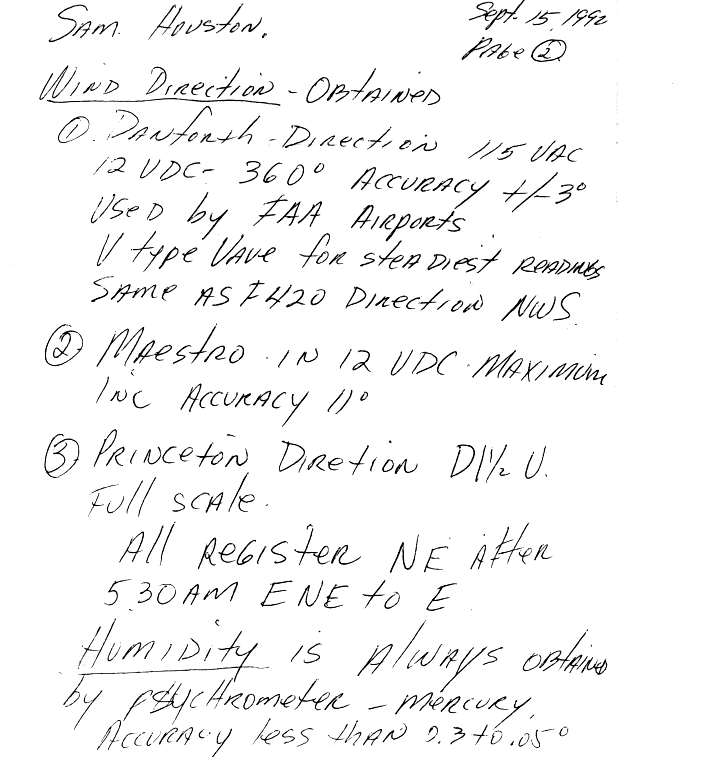 SAM. HOUSTON,
Sept. 15, 1992
PAGE ②
WIND DIRECTION - OBTAINED
① DANFORTH - DIRECTION 115 VAC
12 VDC - 360° ACCURACY +/-3°
USED by FAA AIRPORTS
V type VAVE for steADiest READINGS
SAME AS F420 DIRECTION NWS
② MAESTRO IN 12 VDC. MAXIMUM
INC ACCURACY 11°
③ PRINCETON DIRETION D1½ U.
FULL SCALE.
All REGISTER NE AFTER
5.30 AM ENE to E
HUMIDITY is AlWAYS OBTAINED
by PSYCHROMETER - MERCURY,
ACCURACY less thAN 0.3 to .05°